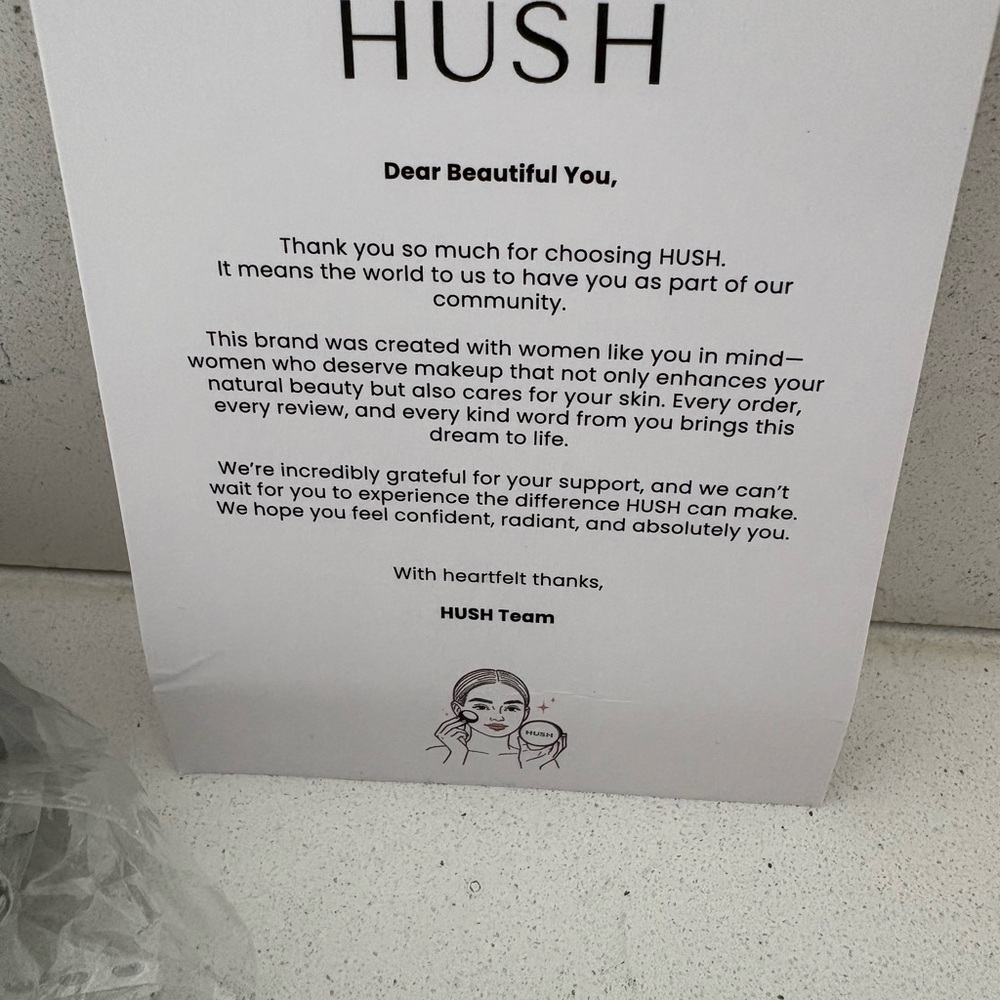 HUSH
Dear Beautiful You,
Thank you so much for choosing HUSH.
It means the world to us to have you as part of our
community.
This brand was created with women like you in mind—
women who deserve makeup that not only enhances your
natural beauty but also cares for your skin. Every order,
every review, and every kind word from you brings this
dream to life.
We're incredibly grateful for your support, and we can't
wait for you to experience the difference HUSH can make.
We hope you feel confident, radiant, and absolutely you.
With heartfelt thanks,
HUSH Team
HUSH